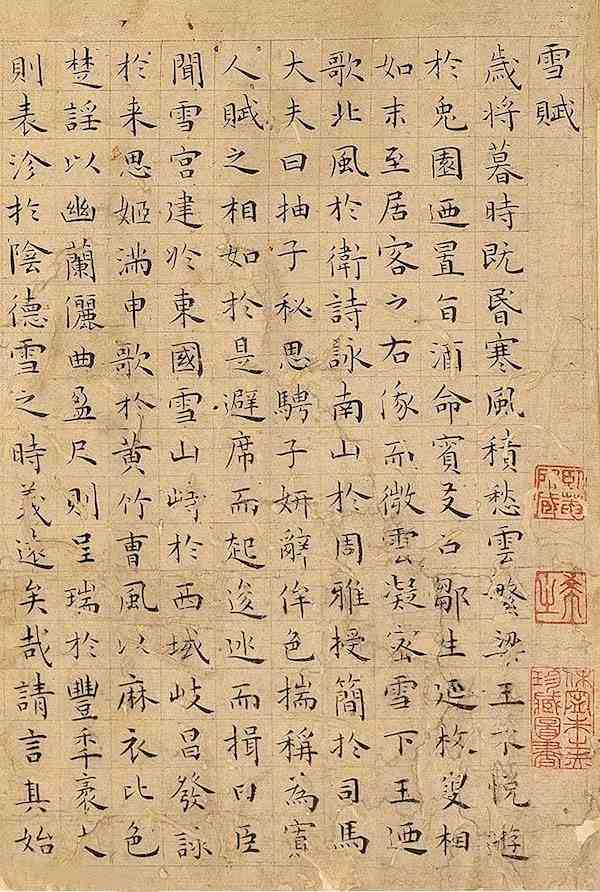 雪賦
歲將暮時既昏寒風積愁雲繁梁王不悅遊
於兔園迺置旨酒命賓友召鄒生延枚叟相
如末至居客之右俄而微雲凝密雪下王迺
歌北風於衛詩詠南山於周雅授簡於司馬
大夫曰抽子秘思騁子妍辭侔色揣稱為寡
人賦之相如於是避席而起逡巡而揖曰臣
聞雪宮建於東國雪山峙於西域岐昌發詠
於来思姬滿申歌於黃竹曹風以麻衣比色
楚謠以幽蘭儷曲盈尺則呈瑞於豐年袤丈
則表沴於陰德雪之時義遠矣哉請言其始
卧菴所藏
休寧朱之赤珍藏圖書